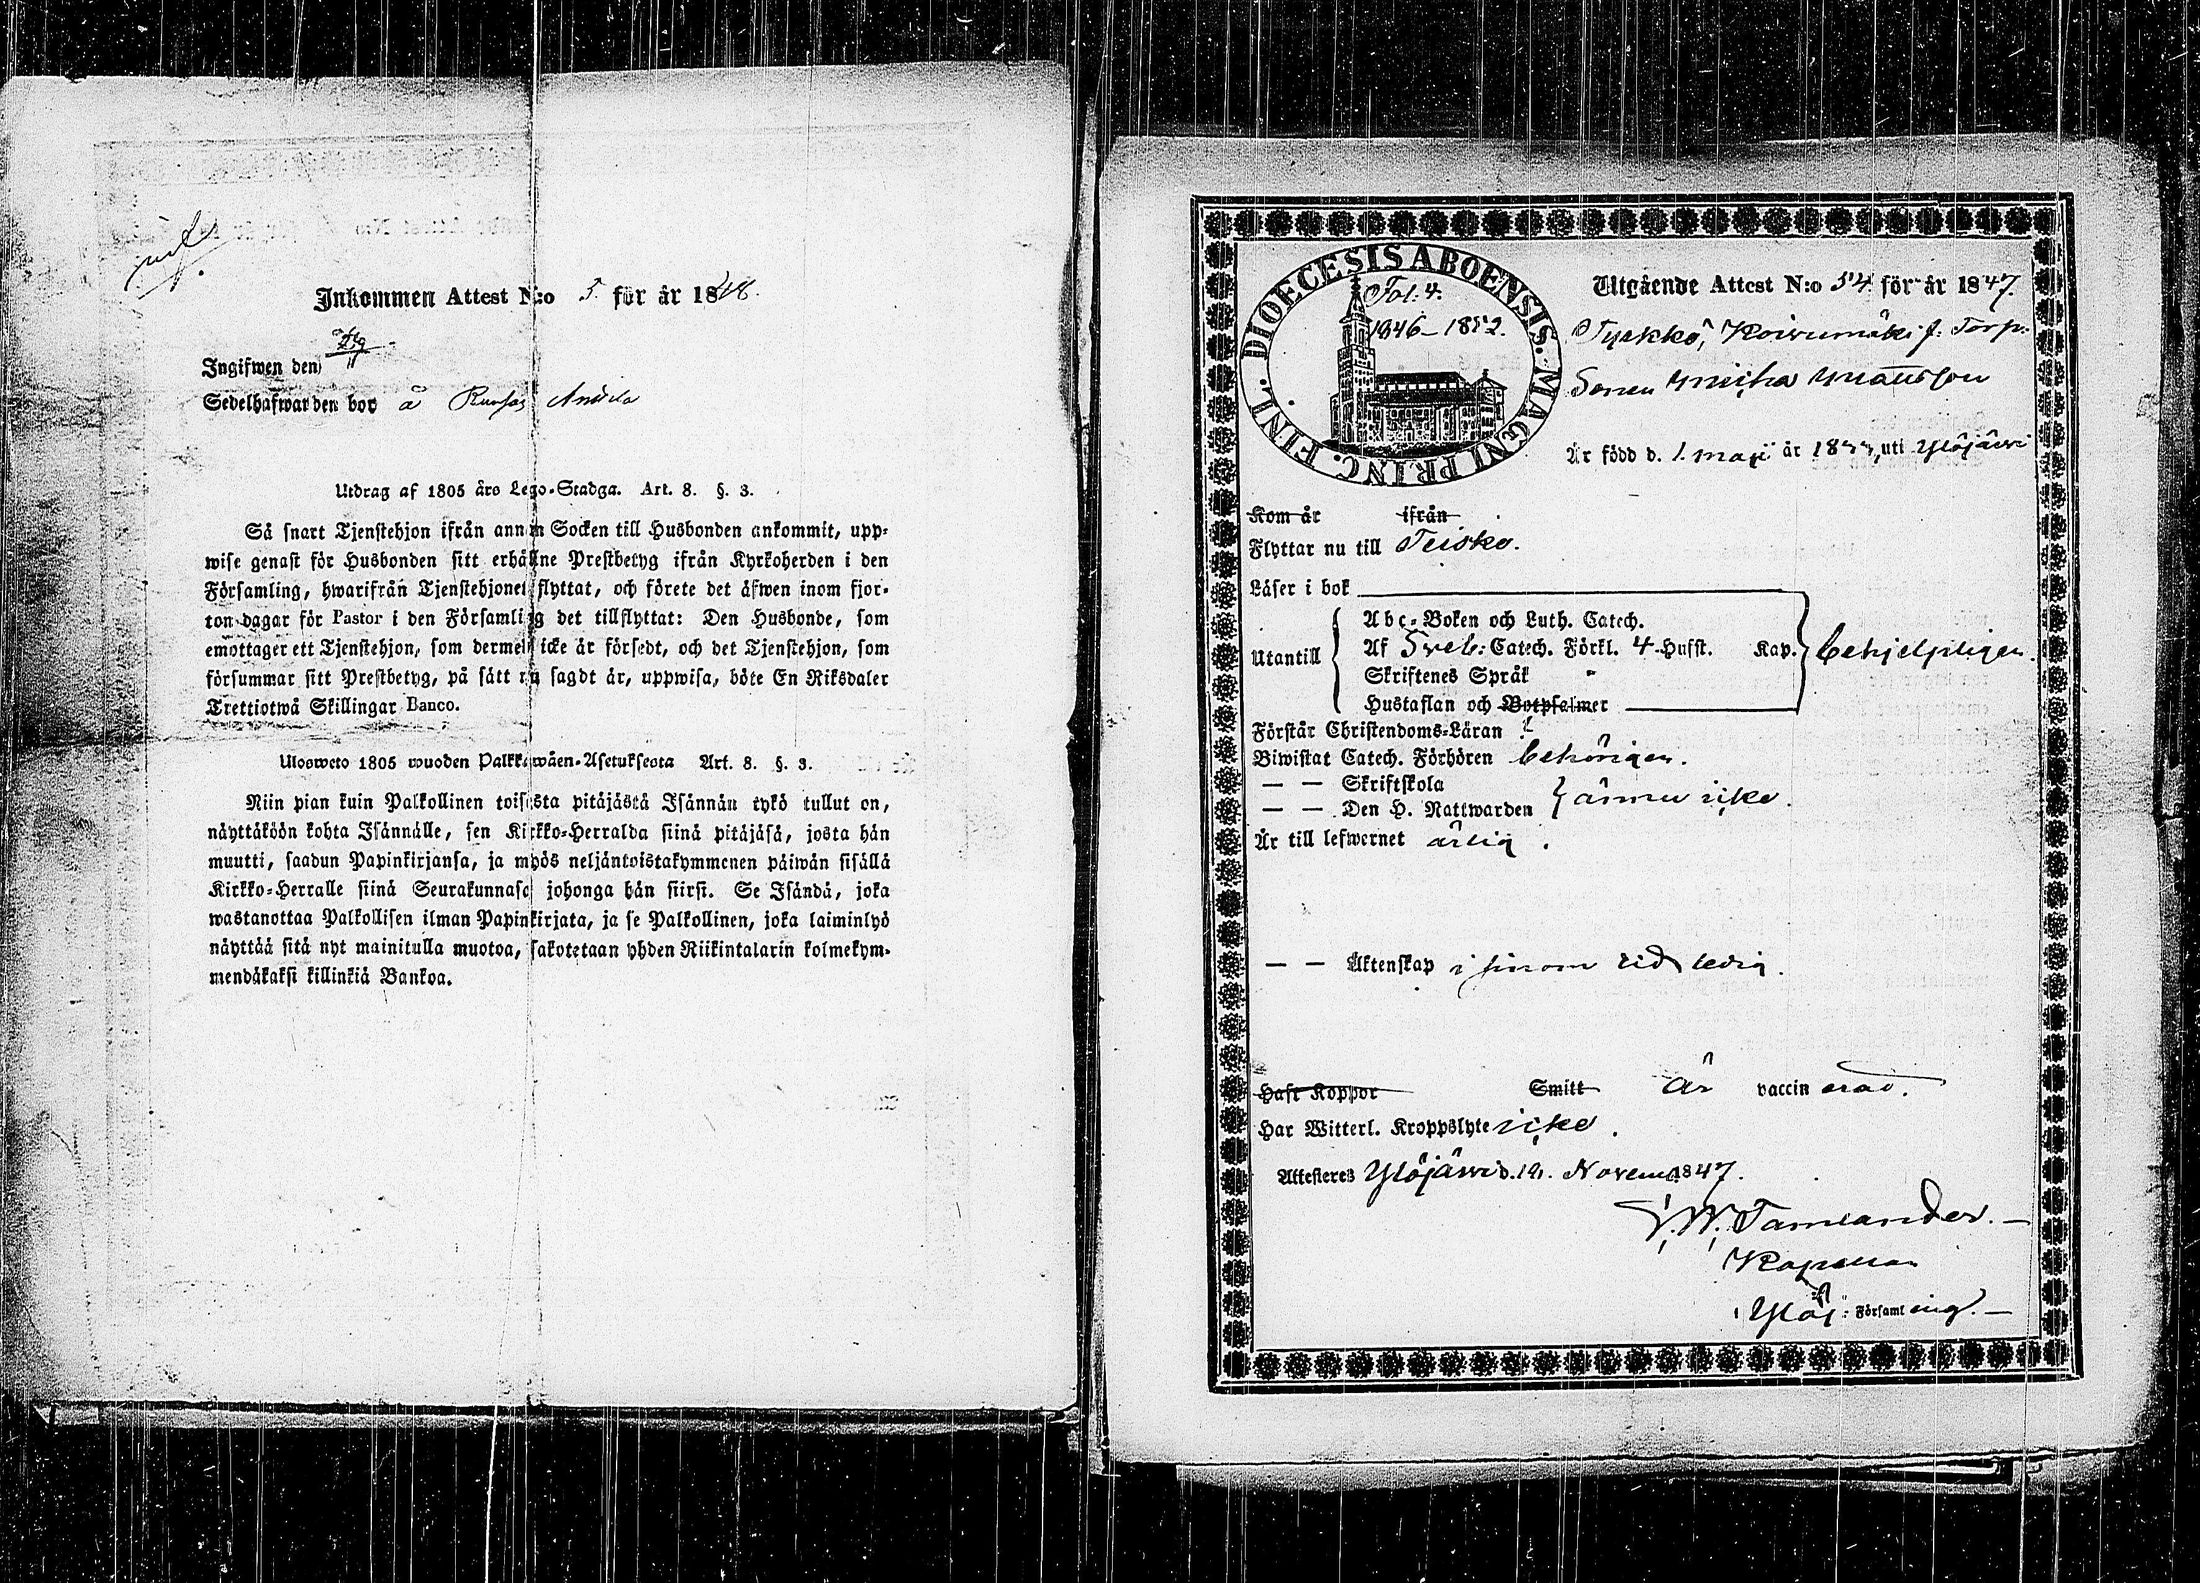 inf.
Inkommen Attest N:o 5. för år 1848.
Ingifwen den
Sedelhafwarden bor å
Utdrag af 1805 års Lego-Stadga. Art. 8. §. 3.
Så snart Tjenstehjon ifrån annan Socken till Husbonden ankommit, upp-
wise genast för Husbonden sitt erhållne Prestbetyg ifrån Kyrkoherden i den
Församling, hwarifrån Tjenstehjonet flyttat, och förete det äfwen inom fjor-
ton dagar för Pastor i den Församling det tillflyttat: Den Husbonde, som
emottager ett Tjenstehjon, som dermed icke är försedt, och det Tjenstehjon, som
försummar sitt Prestbetyg, på sätt nu sagdt är, uppwisa, böte En Riksdaler
Trettiotwå Skillingar Banco.
Ulosweto 1805 wuoden Palkkawäen-Asetuksesta Art. 8. §. 3.
Niin pian kuin Palkollinen toisesta pitäjästä Isännän tykö tullut on,
näyttäköön kohta Isännälle, sen Kirkko-Herralda siinä pitäjäsä, josta hän
muutti, saadun Papinkirjansa, ja myös neljäntoistakymmenen päiwän sisällä
Kirkko-Herralle siinä Seurakunnasa johonga hän siirsi. Se Isändä, joka
wastanottaa Palkollisen ilman Papinkirjata, ja se Palkollinen, joka laiminlyö
näyttää sitä nyt mainitulla muotoa, sakotetaan yhden Riikintalarin kolmekym-
mendäkaksi killinkiä Bankoa.
DIOECESIS ABOENSIS. MAGNI PRINC. FINL.
Fol. 4.
1846-1852.
Utgående Attest N:o 54 för år 1847.
Tyrkkö, Koivumäki f. Torp.
Sonen Matsson
Är född d. 1. maji år 1833, uti Ylöjärvi
Kom år ifrån
Flyttar nu till Teisko.
Läser i bok
Utantill
Abc-Boken och Luth. Catech.
Af Sveb: Catech. Förkl. 4 Hufst. Kap.
Skriftenes Språk
Hustaflan och Botpsalmer
behjelpligen.
Förstår Christendoms-Läran
Biwistat Catech. Förhören behörigen.
— — Skriftskola
— — Den H. Nattwarden
ännu icke.
Är till lefwernet ärlig.
— — Äktenskap i sinom tid ledig.
Haft Koppor Smitt är vaccinerad.
Har Witterl. Kroppslyte icke.
Attesteras Ylöjärvi d. 19. Novemb. 1847.
Tamlander.
Kapellan
i Ylöj: Församling.